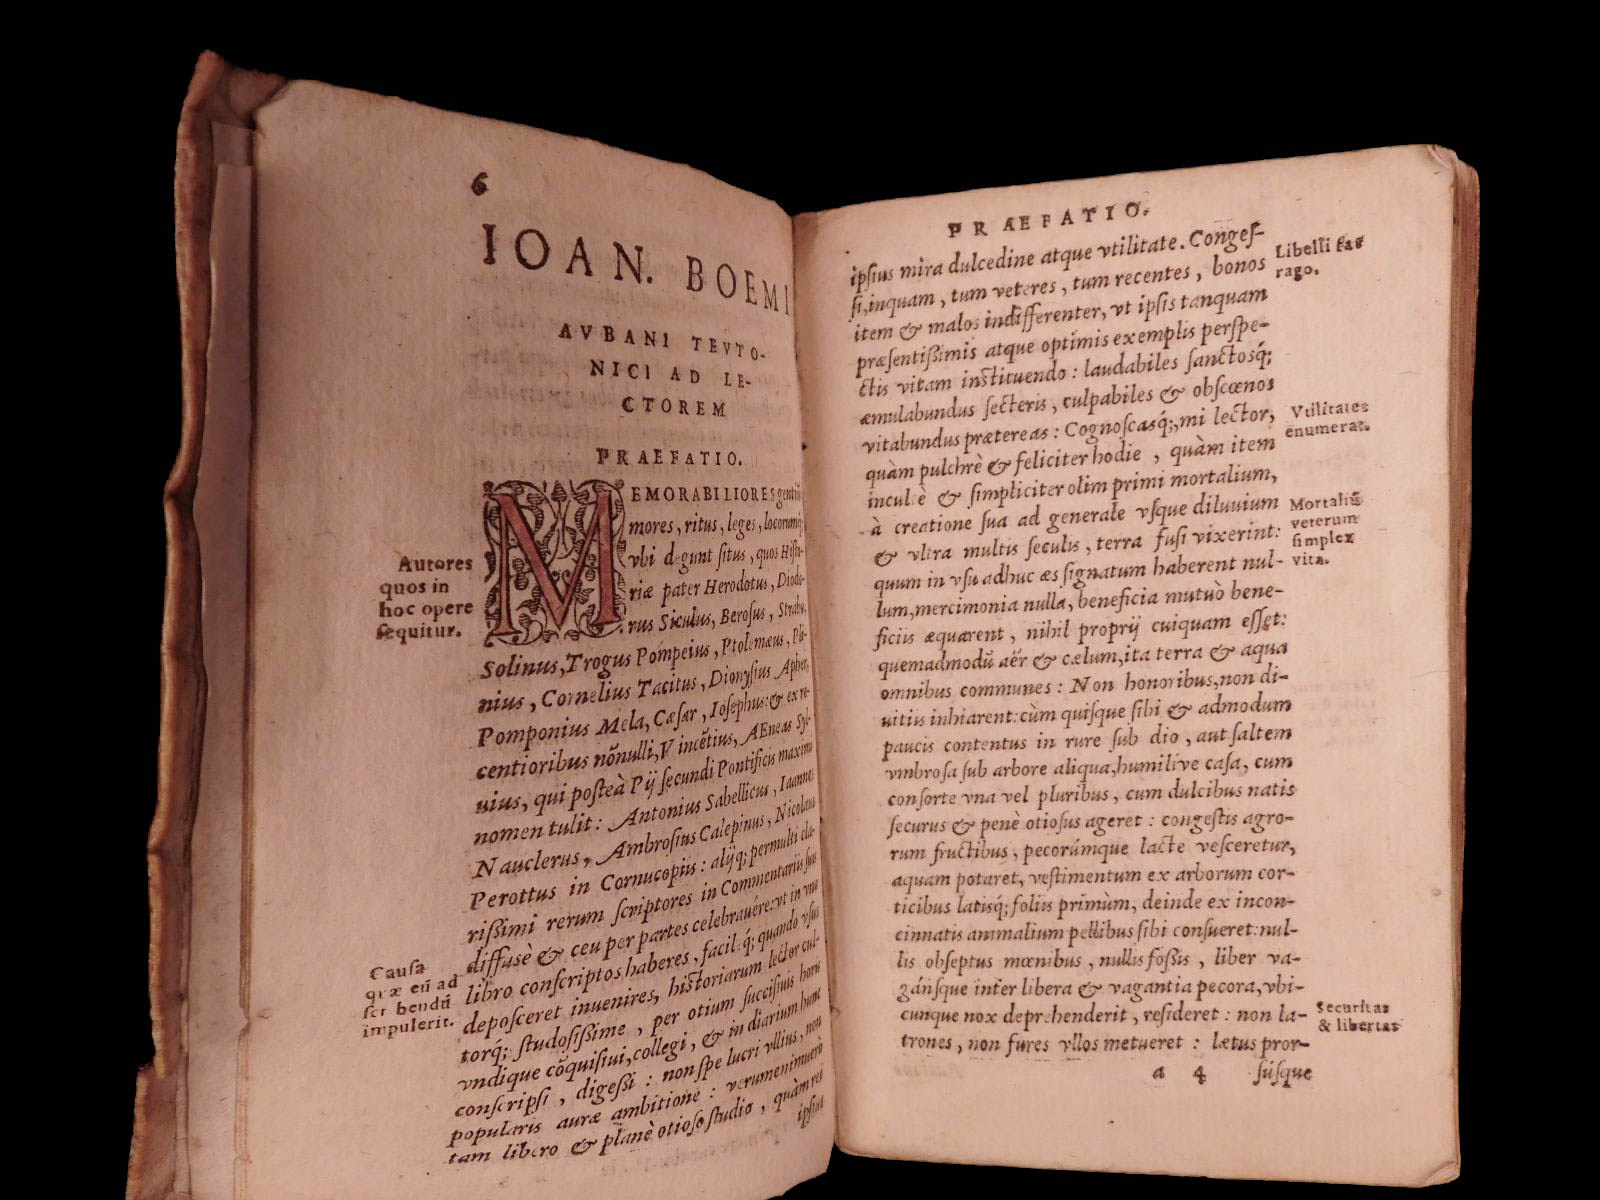 6
IOAN. BOEMI
AVBANI TEVTO-
NICI AD LE-
CTOREM
PRAEFATIO.
MEMORABILIORES gentiū
mores, ritus, leges, locorumq́;
vbi degunt ſitus, quos Hiſto-
riæ pater Herodotus, Diodo-
rus Siculus, Beroſus, Strabo,
Solinus, Trogus Pompeius, Ptolemæus, Pli-
nius, Cornelius Tacitus, Dionyſius Apher,
Pomponius Mela, Cæſar, Ioſephus: & ex re-
centioribus nōnulli, Vincētius, AEneas Syl-
uius, qui poſteà Pij ſecundi Pontificis maximi
nomen tulit: Antonius Sabellicus, Ioannes
Nauclerus, Ambroſius Calepinus, Nicolaus
Perottus in Cornucopiis: alijq́; permulti cla-
riſſimi rerum ſcriptores in Commentariis ſuis
diffusè & ceu per partes celebrauére: vt in vno
libro conſcriptos haberes, facileq́; quando vſus
depoſceret inuenires, hiſtoriarum lector cul-
torq́; ſtudoſiſſime, per otium ſucciſiuis horis
vndique cōquiſiui, collegi, & in diarium hunc
conſcripſi, digeſſi: non ſpe lucri vllius, non
popularis auræ ambitione: verumenimuerò
tam libero & planè otioſo ſtudio, quàm rei
ipſius
Autores
quos in
hoc opere
ſequitur.
Cauſa
quæ eū ad
ſcribendū
impulerit.
PRÆFATIO.
ipſius mira dulcedine atque vtilitate. Congeſ-
ſi, inquam, tum veteres, tum recentes, bonos
item & malos indifferenter, vt ipſis tanquam
præſentiſſimis atque optimis exemplis perſpe-
ctis vitam inſtituendo: laudabiles ſanctosq́;
æmulabundus ſecteris, culpabiles & obſcœnos
vitabundus prætereas: Cognoſcasq́;, mi lector,
quàm pulchrè & feliciter hodie, quàm item
incultè & ſimpliciter olim primi mortalium,
à creatione ſua ad generale vſque diluuium
& vltra multis ſeculis, terra fuſi vixerint:
quum in vſu adhuc æs ſignatum haberent nul-
lum, mercimonia nulla, beneficia mutuò bene-
ficiis æquarent, nihil proprij cuiquam eſſet:
quemadmodū aër & cælum, ita terra & aqua
omnibus communes: Non honoribus, non di-
uitiis inhiarent: cùm quiſque ſibi & admodum
paucis contentus in rure ſub dio, aut ſaltem
vmbroſa ſub arbore aliqua, humilíve caſa, cum
conſorte vna vel pluribus, cum dulcibus natis
ſecurus & penè otioſus ageret: congeſtis agro-
rum fructibus, pecorúmque lacte veſceretur,
aquam potaret, veſtimentum ex arborum cor-
ticibus latisq́; foliis primùm, deinde ex incon-
cinnatis animalium pellibus ſibi conſueret: nul-
lis obſeptus mœnibus, nullis foſſis, liber va-
gánſque inter libera & vagantia pecora, vbi-
cunque nox deprehenderit, reſideret: non la-
trones, non fures vllos metueret: lætus pror-
a 4 ſúſque
Libelli far
rago.
Vtilitates
enumerat.
Mortaliū
veterum
ſimplex
vita.
Securitas
& libertas